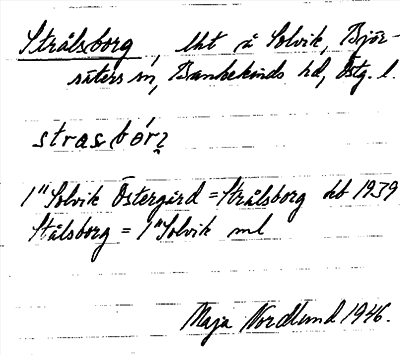 Strålsborg, lht å Solvik, Björ-
säters sn, Bankekinds hd, Östg. l.
strasbórʒ
1" Solvik Östergård = Strålsborg hb 1939
Stålsborg = 1" Solvik ml
Maja Nordlund 1946.